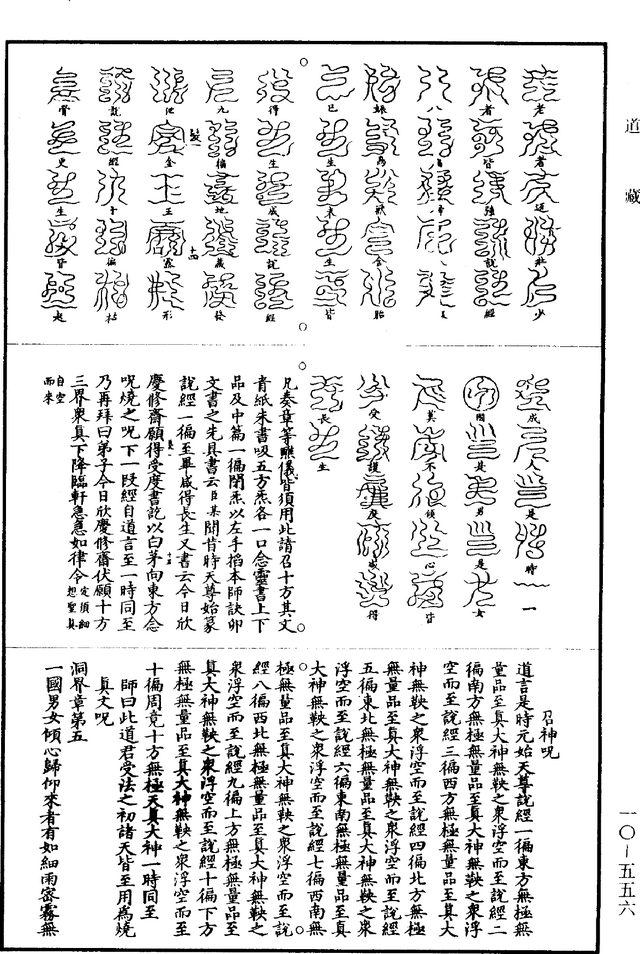 道藏
老者還壯少
者皆強說經
八
為金胎
已生未生皆
得生成說經
九徧地藏發
泄金玉露形
說經十徧枯
骨更生皆起
成人是時一
國是男是女
莫不傾心皆
受護度咸得
長生
凡奏章等醮儀皆須用此請召十方其文
青紙朱書吸五方炁各一口念靈書上下
品及中篇一徧閉炁以左手搯本師訣卯
文書之先具書云臣某聞昔時天尊始篆
說經一徧至畢咸得長生又書云今日欣
慶修齋願得受度書訖以白茅向東方念
呪燒之呪下一段經自道言至一時同至
乃再拜曰弟子今日欣慶修齋伏願十方
三界衆真下降臨軒急急如律令定須細想聖真
自空而來
召神呪
道言是時元始天尊說經一徧東方無極無
量品至真大神無鞅之衆浮空而至說經二
徧南方無極無量品至真大神無鞅之衆浮
空而至說經三徧西方無極無量品至真大
神無鞅之衆浮空而至說經四徧北方無極
無量品至真大神無鞅之衆浮空而至說經
五徧東北無極無量品至真大神無鞅之衆
浮空而至說經六徧東南無極無量品至真
大神無鞅之衆浮空而至說經七徧西南無
極無量品至真大神無鞅之衆浮空而至說
經八徧西北無極無量品至真大神無鞅之
衆浮空而至說經九徧上方無極無量品至
真大神無鞅之衆浮空而至說經十徧下方
無極無量品至真大神無鞅之衆浮空而至
十徧周竟十方無極天真大神一時同至
師曰此道君受法之初諸天皆至用為燒
真文呪
洞界章第五
一國男女傾心歸仰來者有如細雨密霧無
一〇—五五六